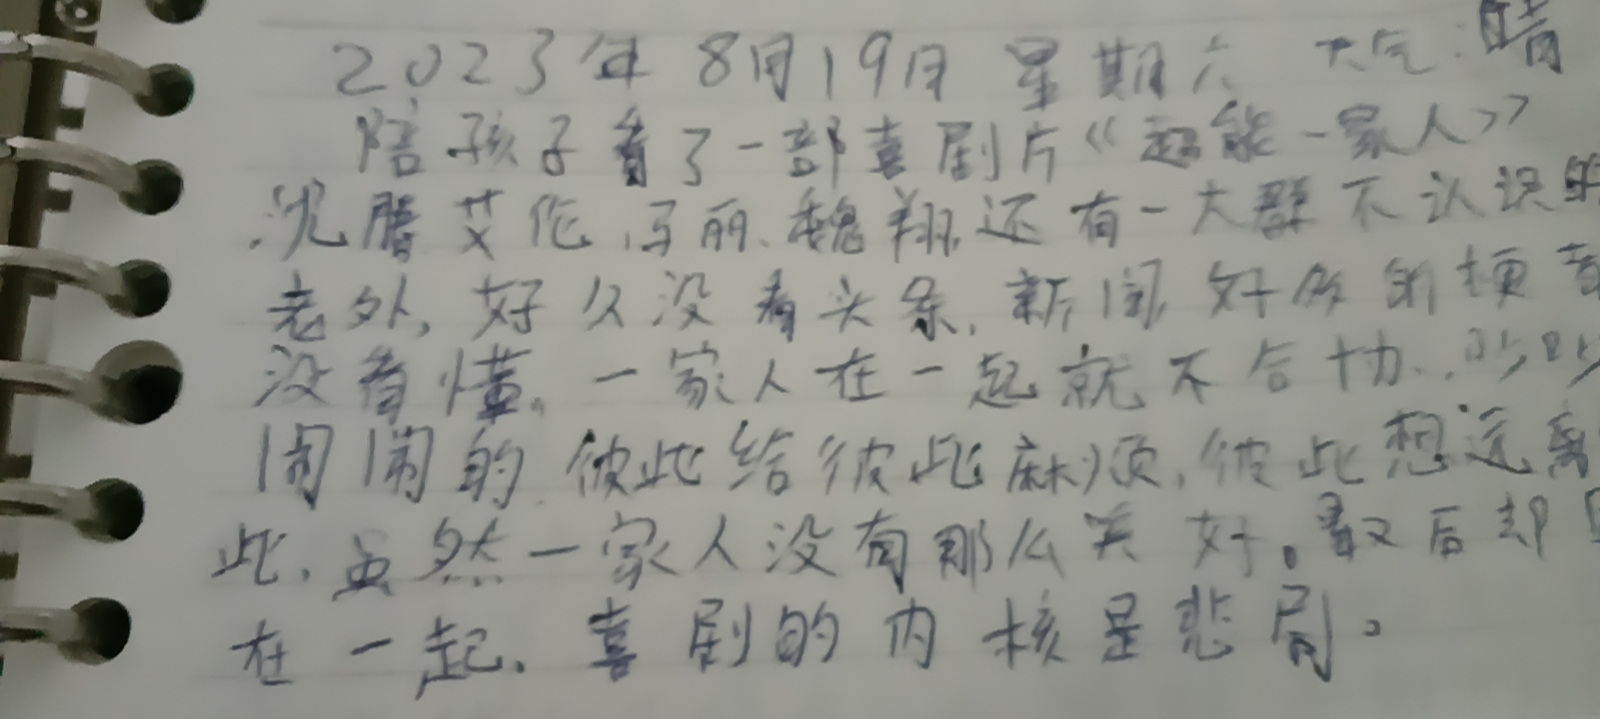 2023年8月19日 星期六 天气:晴
陪孩子看了一部喜剧片《超能一家人》
.沈腾艾伦,马丽、魏翔,还有一大群不认识的
老外,好久没看头条,新闻,好多的梗都
没看懂。一家人在一起就不合协.,吵吵
闹闹的,彼此给彼此麻烦,彼此想远离
此,虽然一家人没有那么美好。最后却
在一起.喜剧的内核是悲剧。